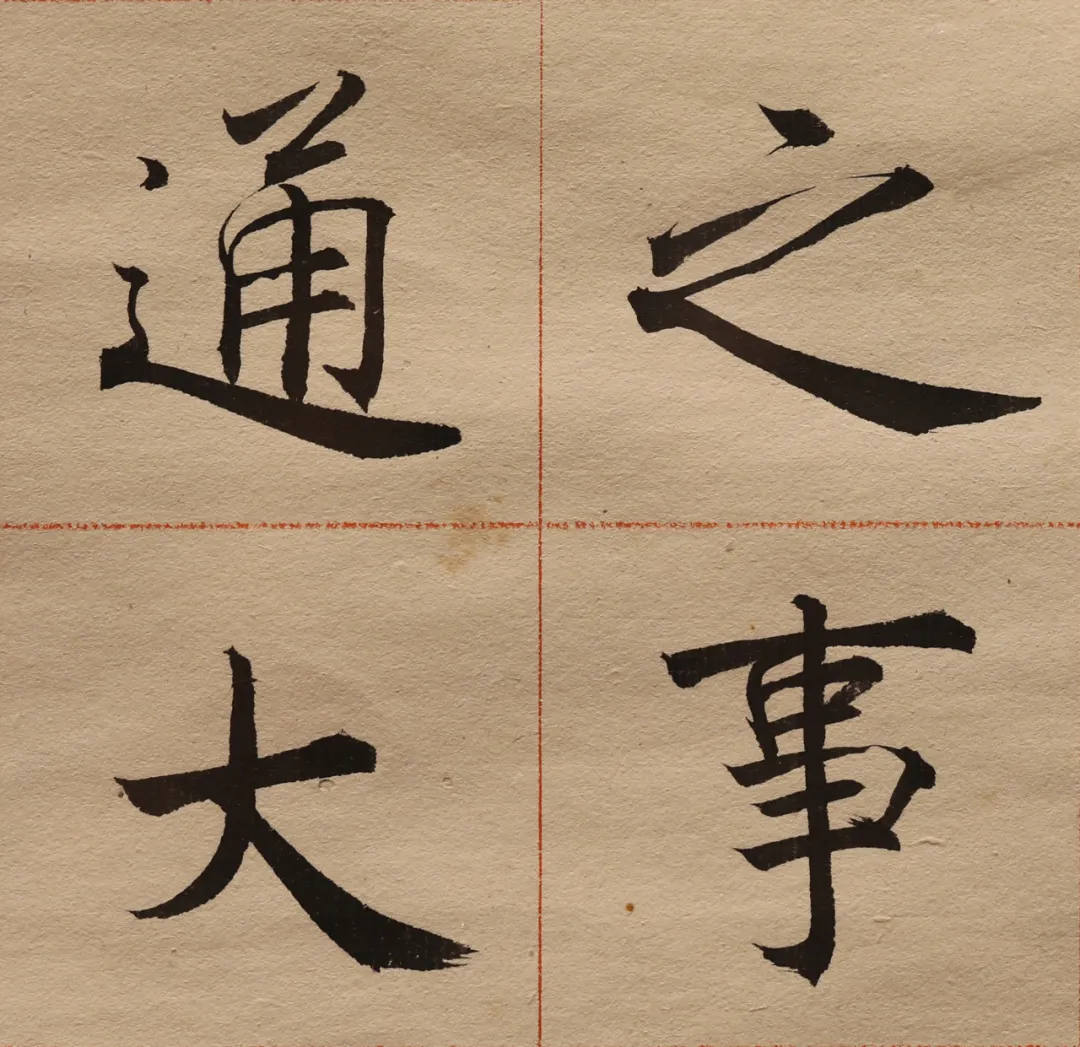 之事
通大